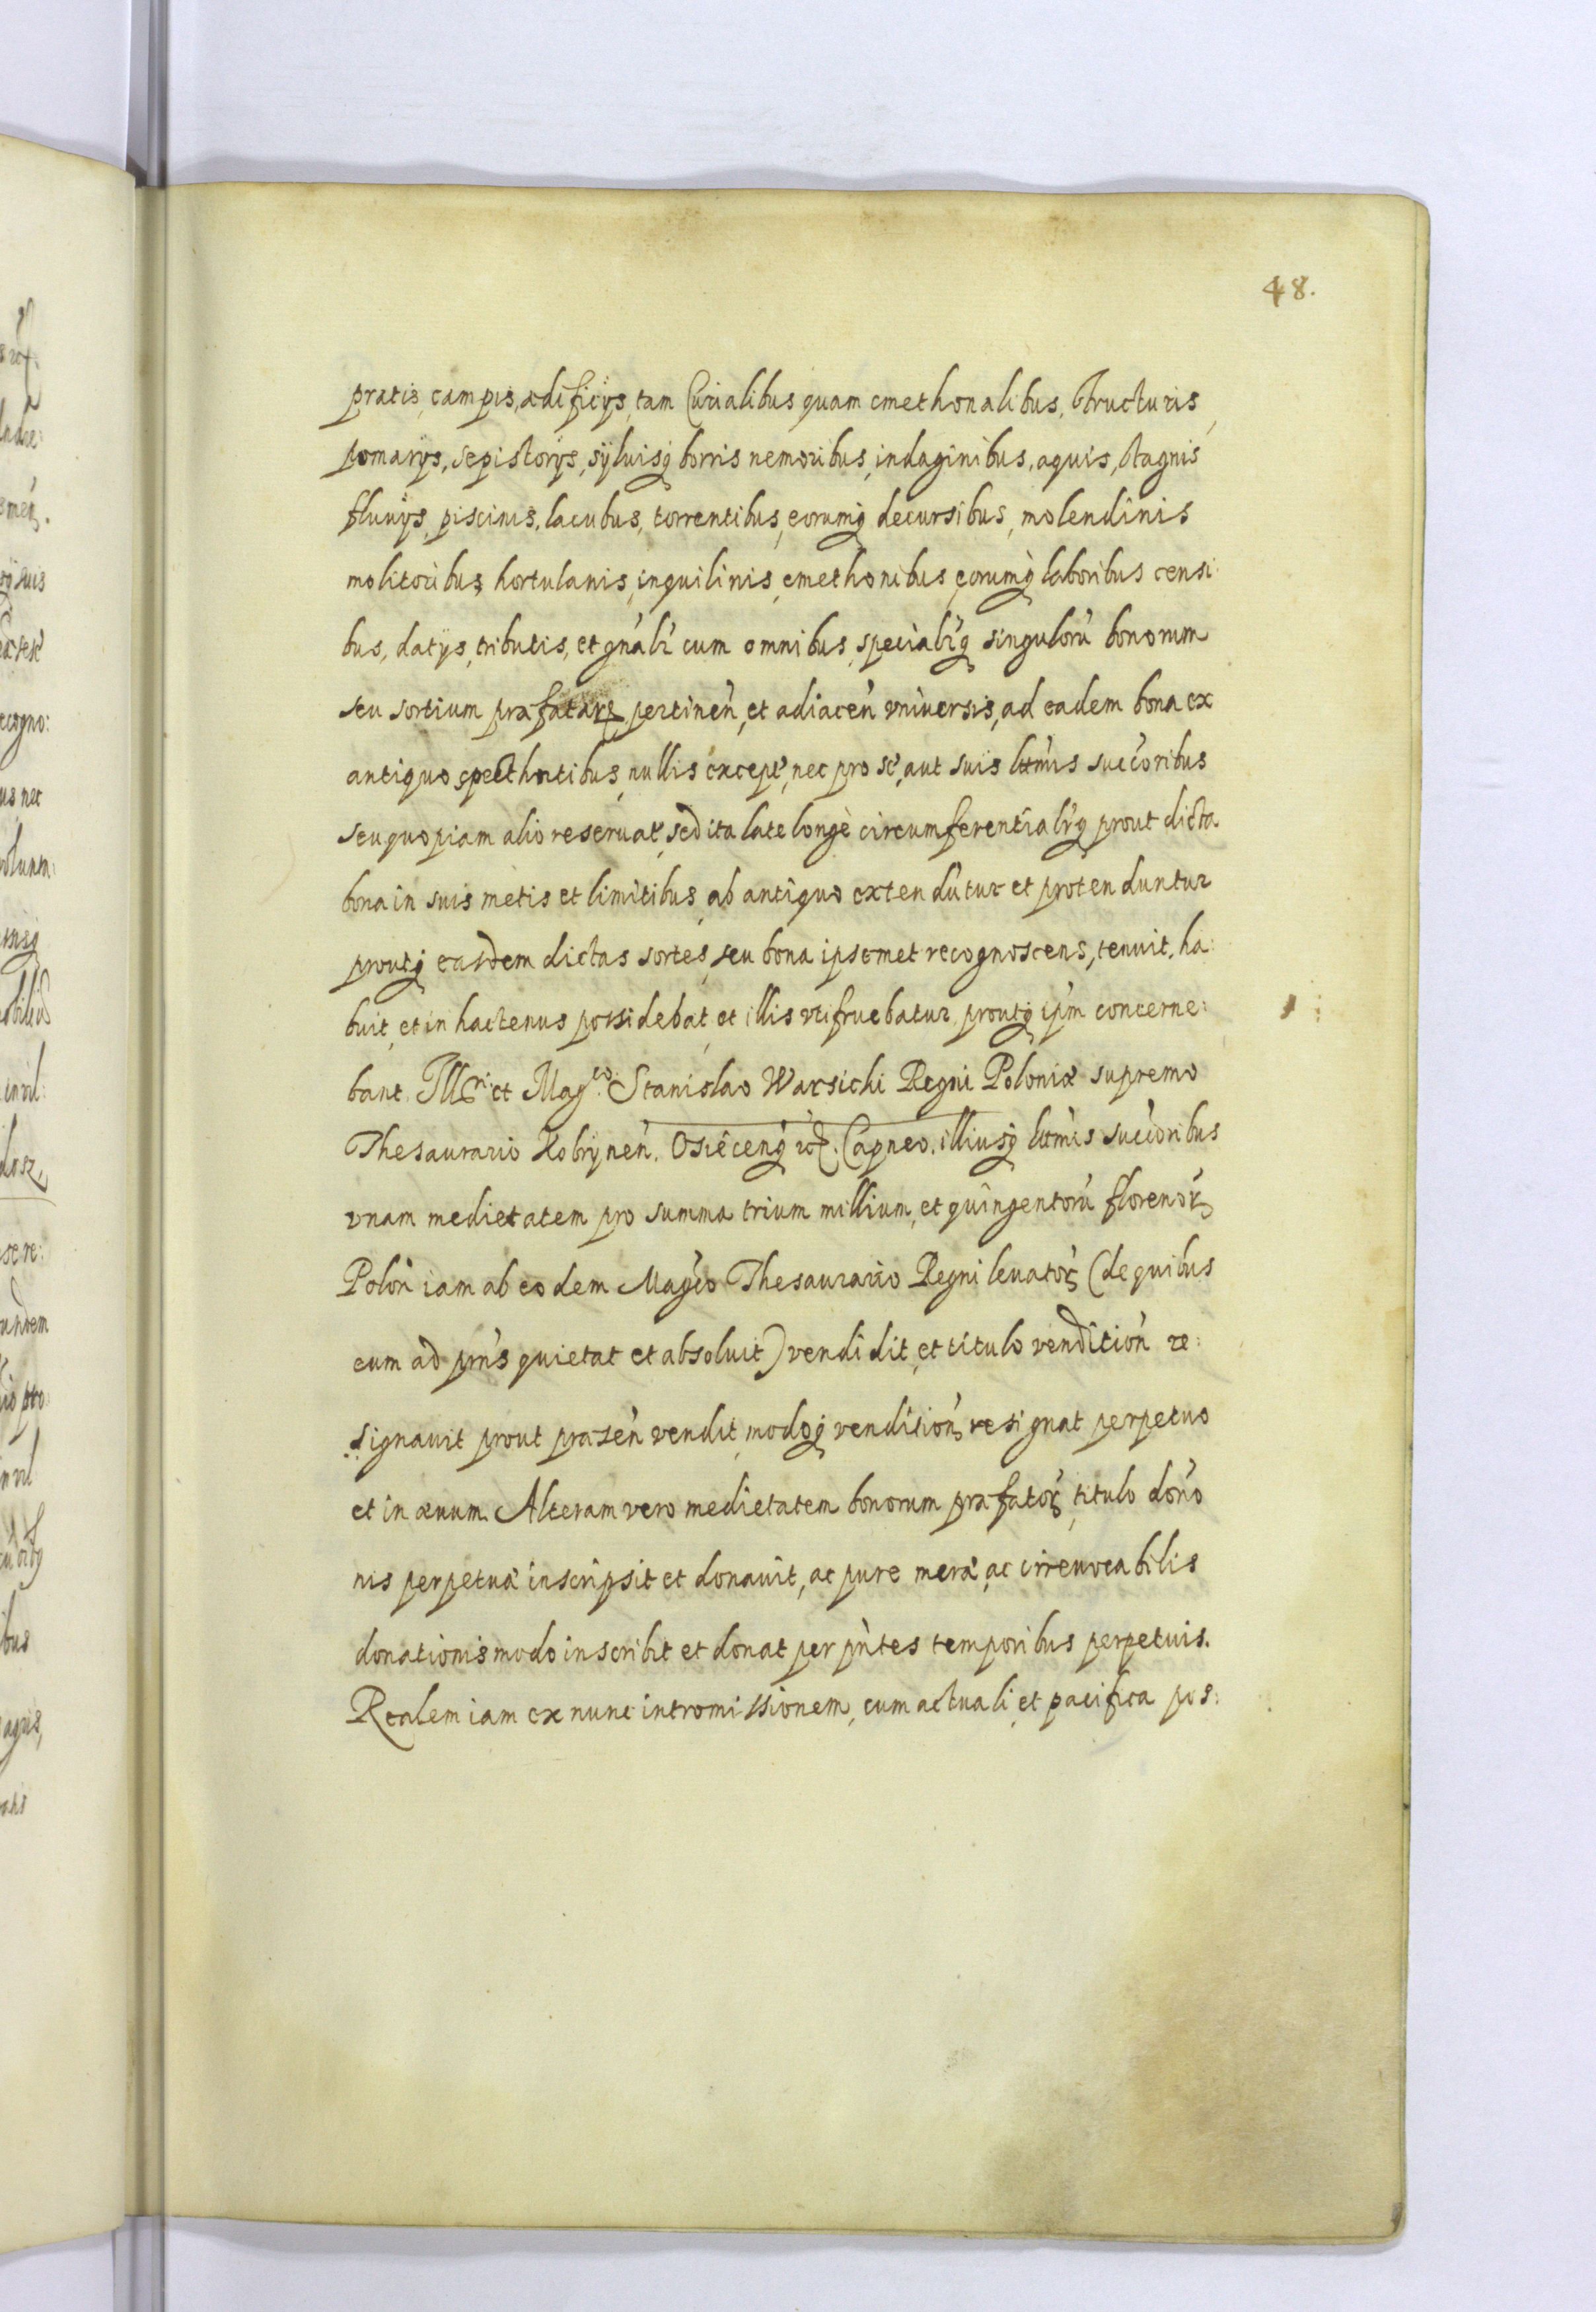 48.
pratis, campis, ædificijs, tam Curialibus quam cmethonalibus, structuris,
pomarijs, sepistorijs, syluisq borris nemoribus, indaginibus, aquis, stagnis
fluuijs, piscinis, lacubus, torrentibus, eorumq decursibus, molendinis
molitoribus, hortulanis, inquilinis, cmethonibus eorumq laboribus censi:
bus, datijs, tributis, et gnâlr cum omnibus, speciâlrq singulorũ bonorum
seu sortium præfatarꝝ pertineñ, et adiaceñ vniuersis, ad eadem bona ex
antiquo spectantibus, nullis except, nec pro se, aut suis lttmis succoribus
seu quopiam alio reseruat, sed ita late longè circumferentialrq prout dicta
bona in suis metis et limitibus, ab antiquo extendũtur et protenduntur
proutq easdem dictas sortes, seu bona ipsemet recognoscens, tenuit, ha:
buit, et in hactenus possidebat, et illis vtifruebatur, proutq ipm concerne:
bant. Illri et Magco. Stanislao Warsichi Regni Poloniæ supremo
Thesaurario Kobryneñ. Osieceñq etc. Capneo. illiusq lttmis succoribus
vnam medietatem pro summa trium millium, et quingentorũ florenorꝝ
Poloñ iam ab eodem Magco Thesaurario Regni leuatorꝝ (de quibus
eum ad pñs quietat et absoluit) vendidit, et titulo venditioñ re:
signauit prout præseñ vendit, modoq venditioñ, resignat perpetuo
et in æuum. Alteram vero medietatem bonorum præfatorꝝ, titulo dono
nis perpetuæ inscripsit et donauit, ac pure meræ, ac irreuocabilis
donationis modo inscribit et donat per pñtes temporibus perpetuis.
Realem iam ex nunc intromissionem, cum actuali, et pacifica pos: